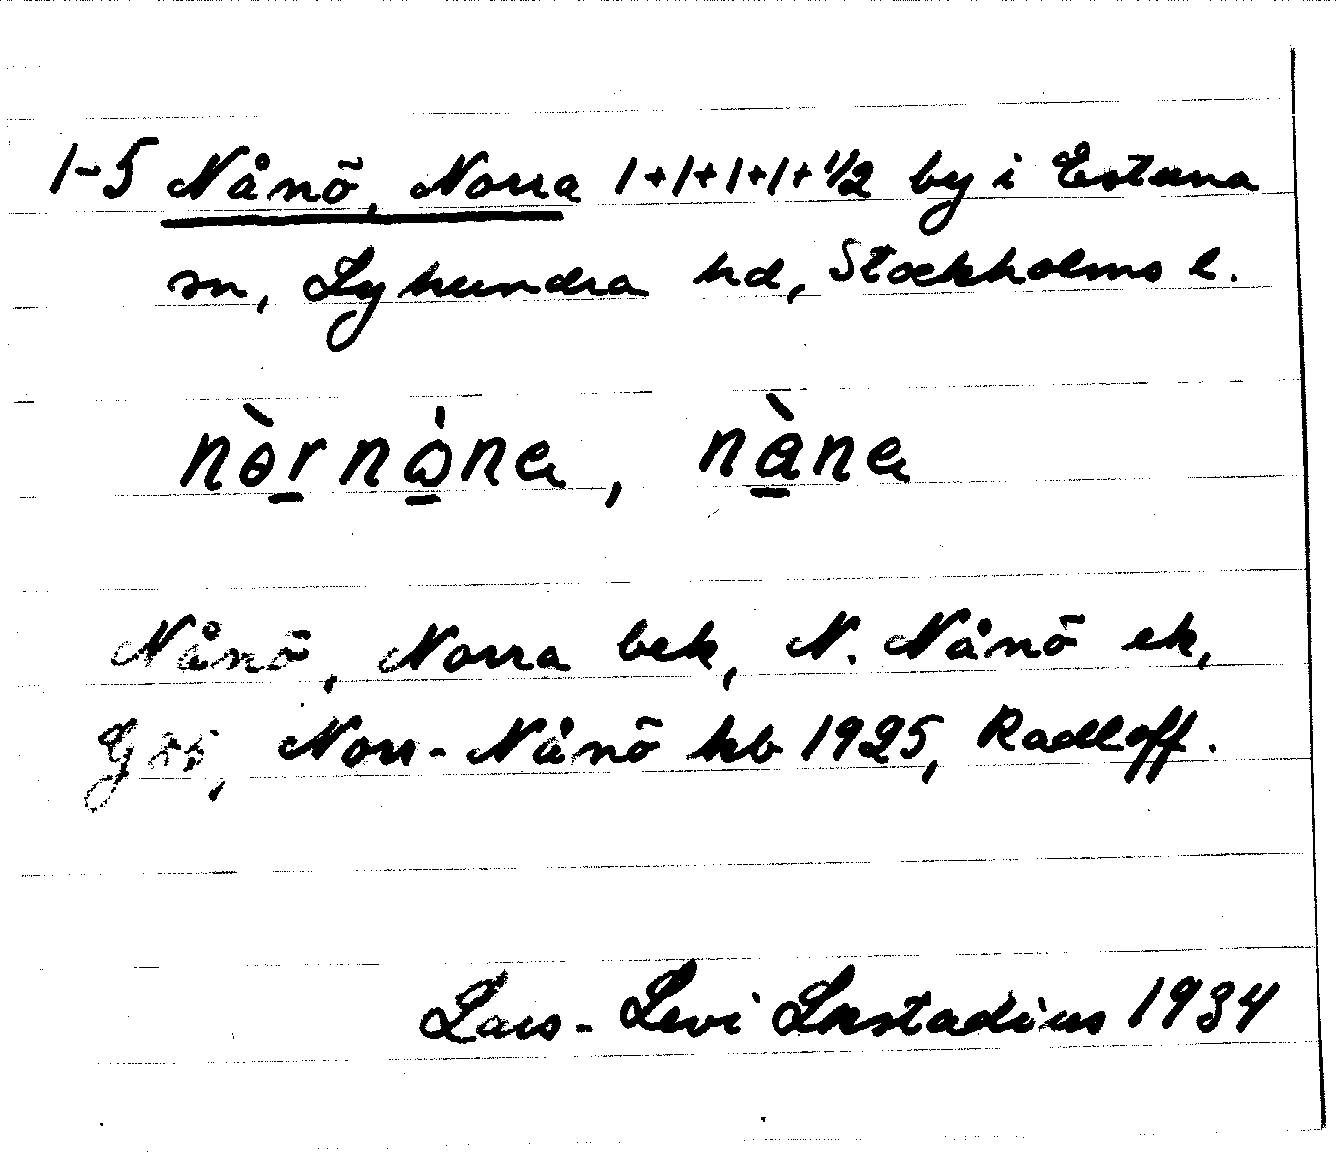 1-5 Nånö, Norra 1+1+1+1+1/2 by i Estuna
sn, Lyhundra hd, Stockholms l.
nòrnȯne, nàne
Nånö, Norra bek, N. Nånö ek,
Göö, Norr-Nånö hb 1925, Radloff.
Lars-Levi Læstadius 1934